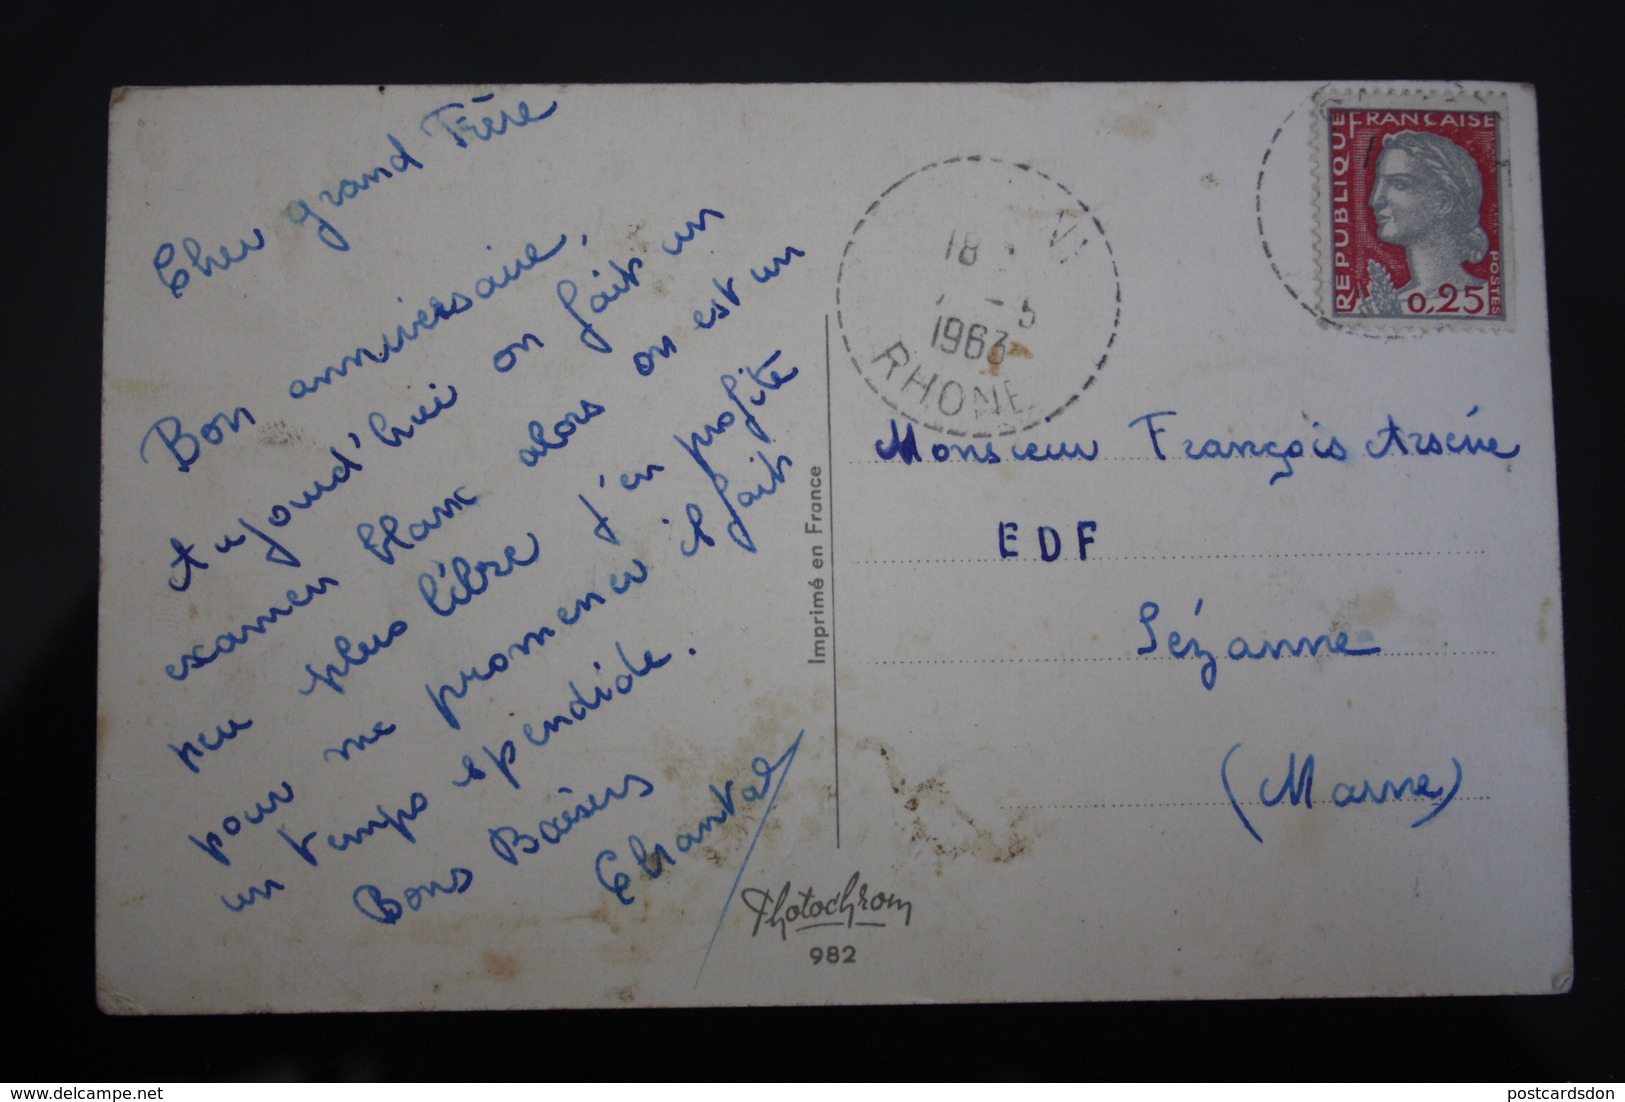 Cher grand Frère
Bon anniversaire,
Aujourd'hui on fait un
examen blanc alors on est un
peu plus libre j'en profite
pour me promener il fait
un temps splendide.
Bons Baisers
Chantal
Photochrom
982
Imprimé en France
18
1963
RHONE
REPUBLIQUE FRANÇAISE
POSTES
0,25
Monsieur François Arsène
EDF
Sézanne
(Marne)
postcardsdon